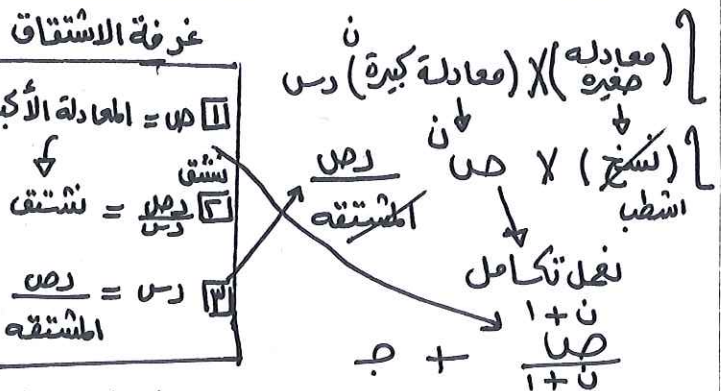 غرفة الاشتقاق
١ ص = المعادلة الأكب
نشتق
٢ دص/دس = نشتق
٣ دس = دص/المشتقه
∫ (معادله صغيره) × (معادلة كبيرة)^ن دس
∫ (نسخ) × ص^ن دص/المشتقه
اشطب
نعمل تكامل
ص^(ن+١)/(ن+١) + جـ